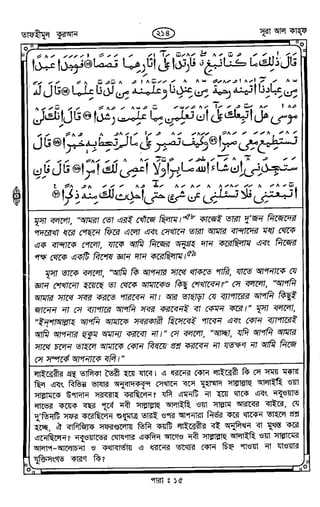 তাফহীমুল কুরআন
২১৪
সূরা আল কাহফ
قَالَ ذٰلِكَ مَا كُنَّا نَبْغِ فَارْتَدَّا عَلٰٓى اٰثَارِهِمَا قَصَصًا فَوَجَدَا عَبْدًا
مِّنْ عِبَادِنَآ اٰتَيْنٰهُ رَحْمَةً مِّنْ عِنْدِنَا وَعَلَّمْنٰهُ مِنْ لَّدُنَّا عِلْمًا قَالَ لَهٗ
مُوْسٰى هَلْ اَتَّبِعُكَ عَلٰٓى اَنْ تُعَلِّمَنِ مِمَّا عُلِّمْتَ رُشْدًا قَالَ اِنَّكَ لَنْ
تَسْتَطِيْعَ مَعِىَ صَبْرًا وَكَيْفَ تَصْبِرُ عَلٰى مَا لَمْ تُحِطْ بِهٖ خُبْرًا قَالَ
سَتَجِدُنِىْٓ اِنْ شَآءَ اللهُ صَابِرًا وَّلَآ اَعْصِىْ لَكَ اَمْرًا قَالَ فَاِنِ
اتَّبَعْتَنِىْ فَلَا تَسْئَلْنِىْ عَنْ شَىْءٍ حَتّٰٓى اُحْدِثَ لَكَ مِنْهُ ذِكْرًا
মূসা বললো, "আমরা তো এরই খোঁজে ছিলাম।"৫৮ কাজেই তারা দু'জন নিজেদের
পদরেখা ধরে পেছনে ফিরে এলো এবং সেখানে তারা আমার বান্দাদের মধ্য থেকে
এক বান্দাকে পেলো, যাকে আমি নিজের অনুগ্রহ দান করেছিলাম এবং নিজের
পক্ষ থেকে একটি বিশেষ জ্ঞান দান করেছিলাম।৫৯
মূসা তাকে বললো, "আমি কি আপনার সাথে থাকতে পারি, যাতে আপনাকে যে
জ্ঞান শেখানো হয়েছে তা থেকে আমাকেও কিছু শেখাবেন?" সে বললো, "আপনি
আমার সাথে সবর করতে পারবেন না। আর তাছাড়া যে ব্যাপারের আপনি কিছুই
জানেন না সে ব্যাপারে আপনি সবর করবেনই বা কেমন করে।" মূসা বললো,
"ইন্‌শাআল্লাহ আপনি আমাকে সবরকারী হিসেবেই পাবেন এবং কোন ব্যাপারেই
আমি আপনার হুকুম অমান্য করবো না।" সে বললো, "আচ্ছা, যদি আপনি আমার
সাথে চলেন তাহলে আমাকে কোন বিষয়ে প্রশ্ন করবেন না যতক্ষণ না আমি নিজে
সে সম্পর্কে আপনাকে বলি।"
লাইব্রেরীর গ্রন্থ তালিকা তৈরী হয়ে যাবে। এ ধরনের কোন লাইব্রেরী কি সে সময় মক্কায়
ছিল এবং বিভিন্ন ভাষার অনুবাদকবৃন্দ সেখানে বসে মুহাম্মাদ সাল্লাল্লাহু আলাইহি ওয়া
সাল্লামকে উপাদান সরবরাহ করছিলেন? যদি এমনটি না হয়ে থাকে এবং নবুওয়াত
লাভের কয়েক বছর পূর্বে নবী সাল্লাল্লাহু আলাইহি ওয়া সাল্লাম আরবের বাইরে, যে
দু'তিনটি সফর করেছিলেন শুধুমাত্র তারই ওপর আপনারা নির্ভর করে থাকেন তাহলে প্রশ্ন
হচ্ছে, ঐ বাণিজ্যিক সফরগুলোয় তিনি কয়টি লাইব্রেরীর বই অনুলিখন বা মুখস্ত করে
এনেছিলেন? নবুওয়াতের ঘোষণার একদিন আগেও নবী সাল্লাল্লাহু আলাইহি ওয়া সাল্লামের
আলাপ-আলোচনা ও কথাবার্তায় এ ধরনের তথ্যের কোন চিহ্ন পাওয়া না যাওয়ার
যুক্তিসংগত কারণ কি?
পারা : ১৫